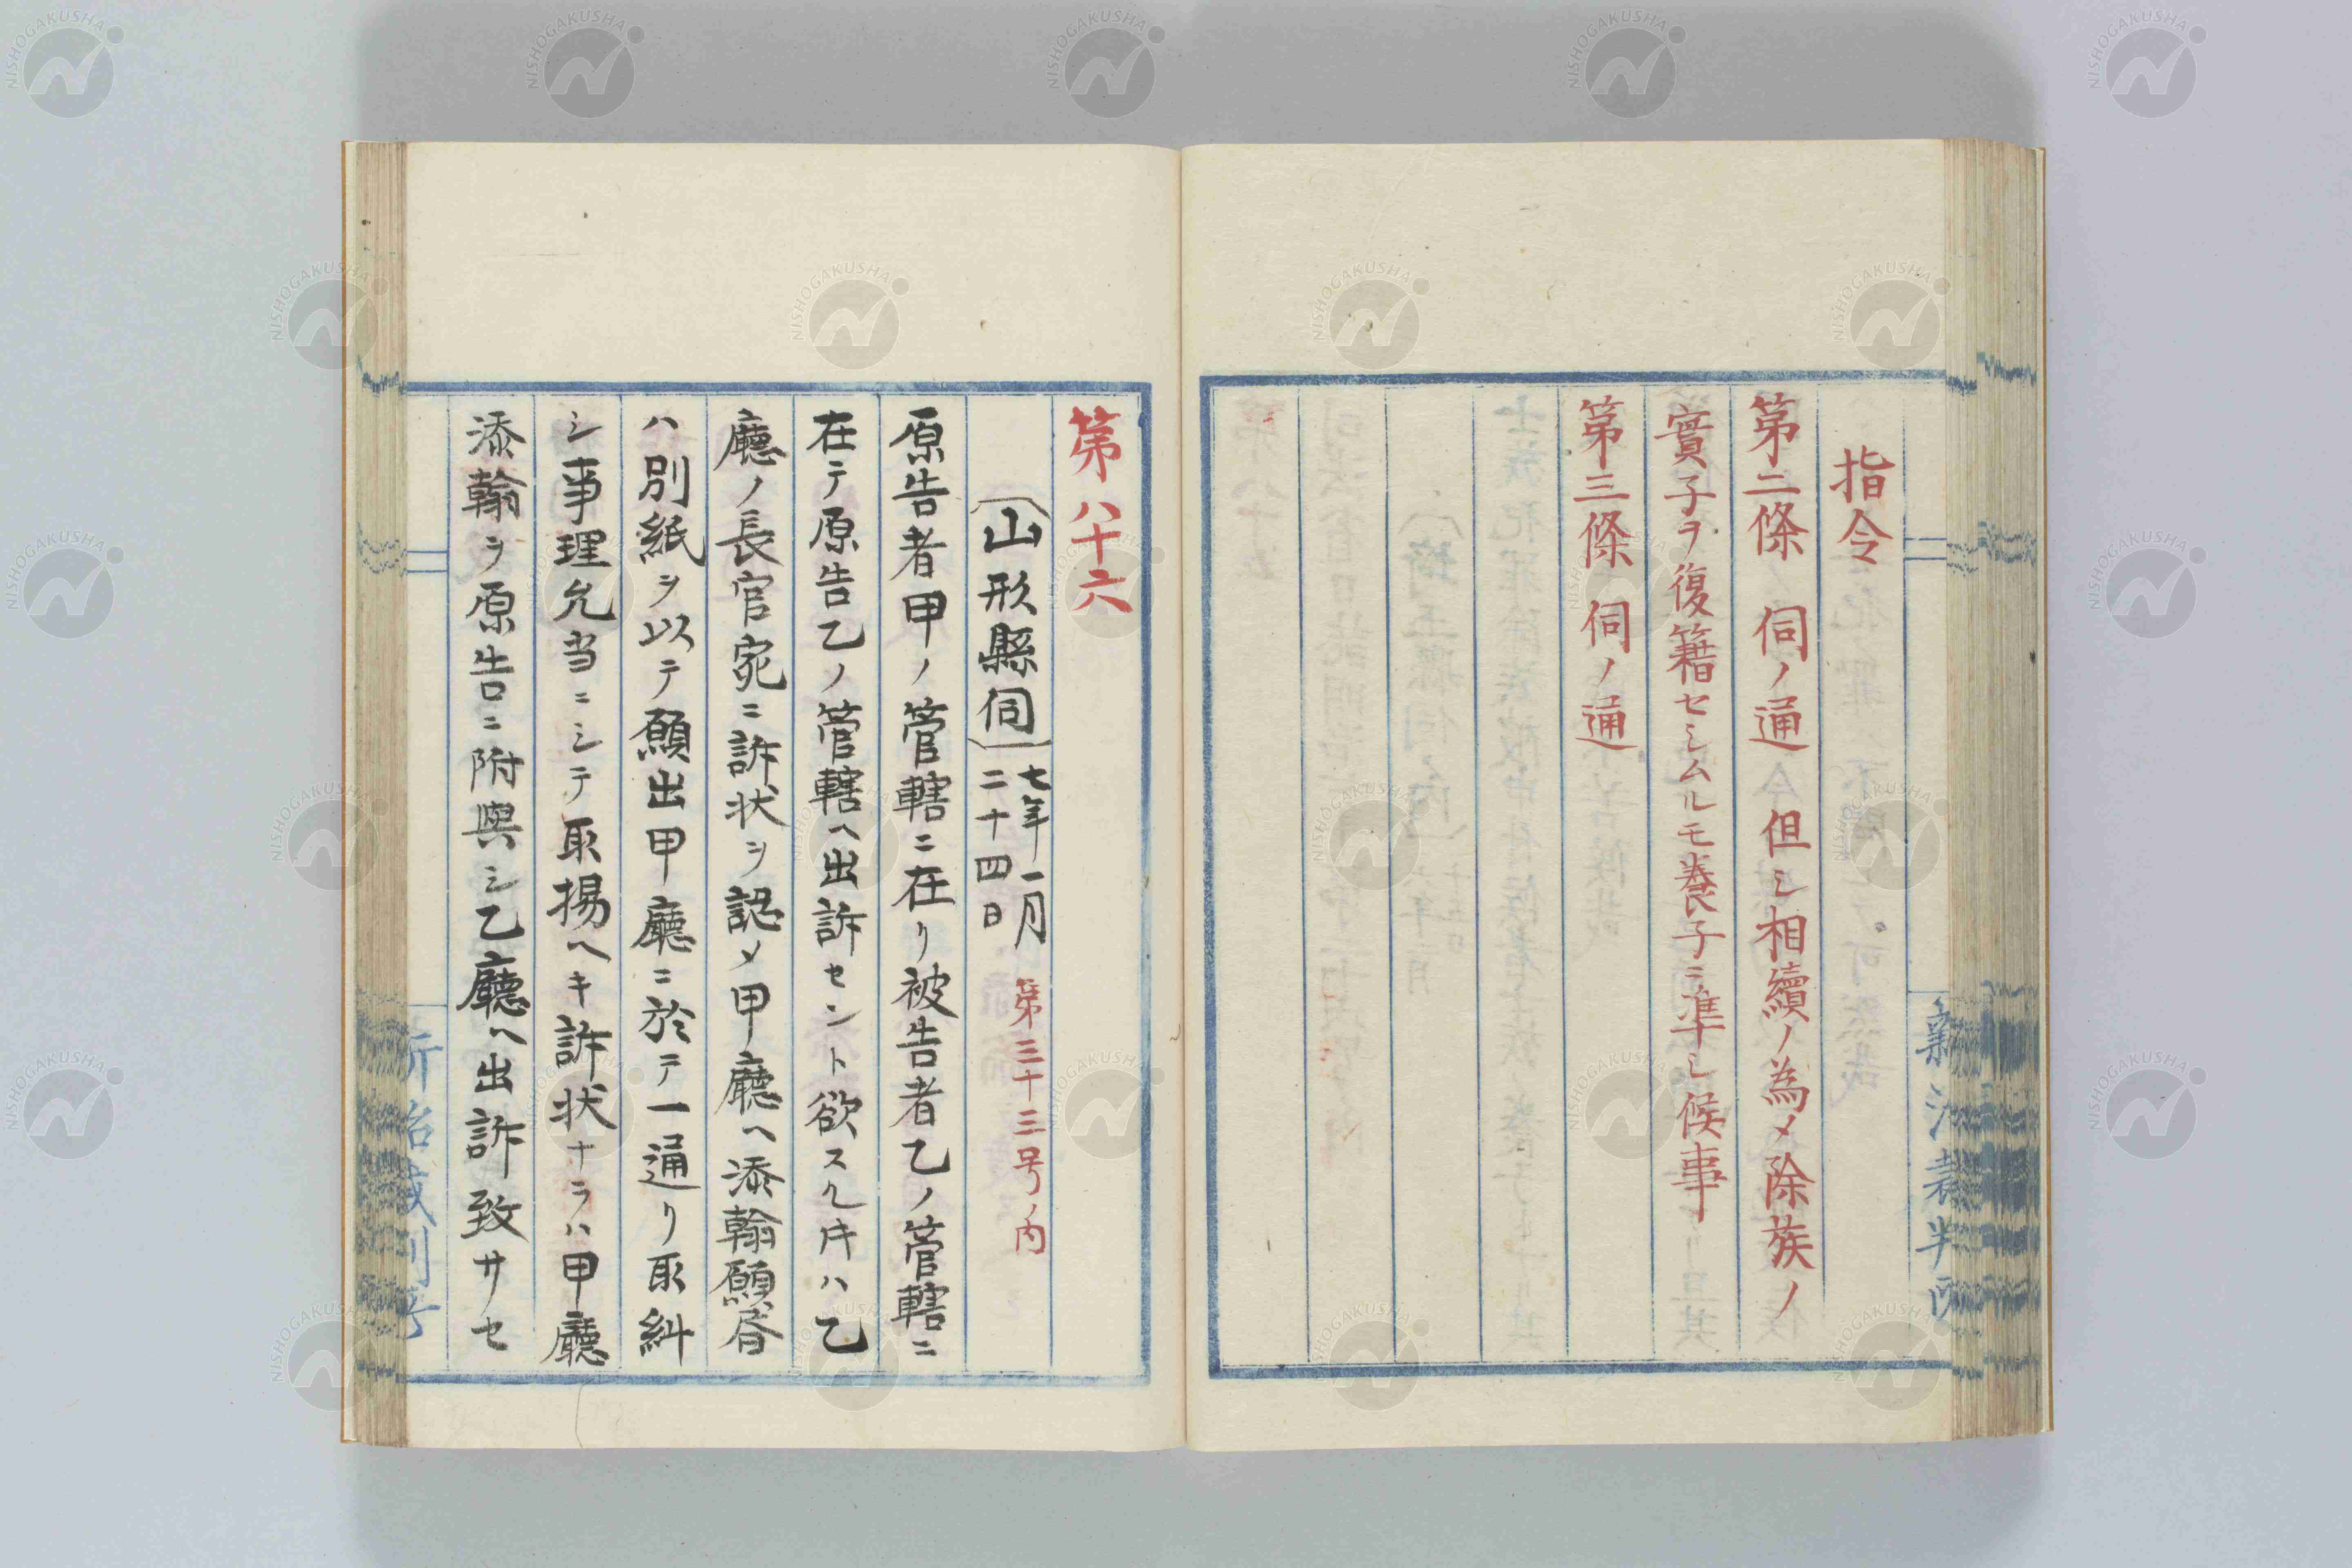 指令
第二條 伺ノ通 但シ相續ノ為メ除族ノ
實子ヲ復籍セシムルモ養子ニ準シ候事
第三條 伺ノ通
第八十六
(山形縣伺) 七年一月二十四日 第三十三号ノ内
原告者甲ノ管轄ニ在リ被告者乙ノ管轄ニ
在テ原告乙ノ管轄ヘ出訴セント欲スル𪜈ハ乙
廳ノ長官宛ニ訴状ヲ認メ甲廳ヘ添翰願書
ハ別紙ヲ以テ願出甲廳ニ於テ一通リ取糾
シ事理允当ニシテ取揚ヘキ訴状ナラハ甲廳
添翰ヲ原告ニ附與シ乙廳ヘ出訴致サセ
NISHOGAKUSHA